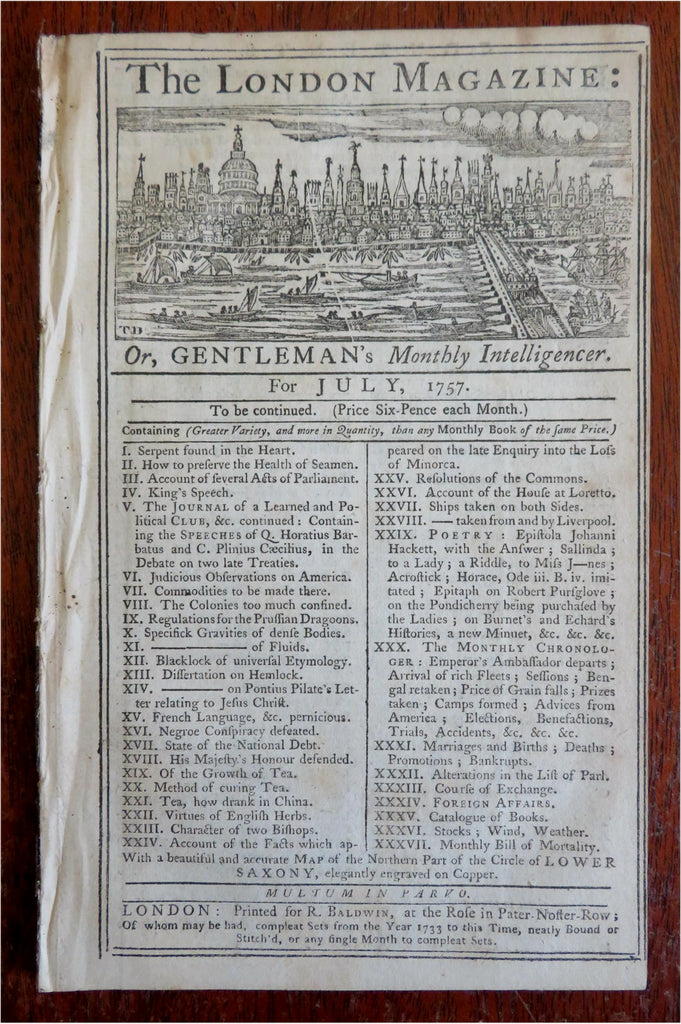 The LONDON MAGAZINE:
TB
Or, GENTLEMAN's Monthly Intelligencer.
For JULY, 1757.
To be continued. (Price Six-Pence each Month.)
Containing (Greater Variety, and more in Quantity, than any Monthly Book of the ſame Price.)
I. Serpent found in the Heart.
II. How to preſerve the Health of Seamen.
III. Account of ſeveral Acts of Parliament.
IV. King's Speech.
V. The JOURNAL of a Learned and Po-
litical CLUB, &c. continued: Contain-
ing the SPEECHES of Q. Horatius Bar-
batus and C. Plinius Cæcilius, in the
Debate on two late Treaties.
VI. Judicious Obſervations on America.
VII. Commodities to be made there.
VIII. The Colonies too much confined.
IX. Regulations for the Pruſſian Dragoons.
X. Specifick Gravities of denſe Bodies.
XI. ——— of Fluids.
XII. Blacklock of univerſal Etymology.
XIII. Diſſertation on Hemlock.
XIV. ——— on Pontius Pilate's Let-
ter relating to Jeſus Chriſt.
XV. French Language, &c. pernicious.
XVI. Negroe Conſpiracy defeated.
XVII. State of the National Debt.
XVIII. His Majeſty's Honour defended.
XIX. Of the Growth of Tea.
XX. Method of curing Tea.
XXI. Tea, how drank in China.
XXII. Virtues of Engliſh Herbs.
XXIII. Character of two Biſhops.
XXIV. Account of the Facts which ap-
peared on the late Enquiry into the Loſs
of Minorca.
XXV. Reſolutions of the Commons.
XXVI. Account of the Houſe at Loretto.
XXVII. Ships taken on both Sides.
XXVIII. —— taken from and by Liverpool.
XXIX. POETRY: Epiſtola Johanni
Hackett, with the Anſwer; Sallinda;
to a Lady; a Riddle, to Miſs J—nes;
Acroſtick; Horace, Ode iii. B. iv. imi-
tated; Epitaph on Robert Purſglove;
on the Pondicherry being purchaſed by
the Ladies; on Burnet's and Echard's
Hiſtories, a new Minuet, &c. &c. &c.
XXX. The MONTHLY CHRONOLO-
GER: Emperor's Ambaſſador departs;
Arrival of rich Fleets; Seſſions; Ben-
gal retaken; Price of Grain falls; Prizes
taken; Camps formed; Advices from
America; Elections, Benefactions,
Trials, Accidents, &c. &c. &c.
XXXI. Marriages and Births; Deaths;
Promotions; Bankrupts.
XXXII. Alterations in the Liſt of Parl.
XXXIII. Courſe of Exchange.
XXXIV. FOREIGN AFFAIRS.
XXXV. Catalogue of Books.
XXXVI. Stocks; Wind, Weather.
XXXVII. Monthly Bill of Mortality.
With a beautiful and accurate MAP of the Northern Part of the Circle of LOWER
SAXONY, elegantly engraved on Copper.
MULTUM IN PARVO.
LONDON: Printed for R. BALDWIN, at the Roſe in Pater-Noſter-Row;
Of whom may be had, compleat Sets from the Year 1733 to this Time, neatly Bound or
Stitch'd, or any ſingle Month to compleat Sets.